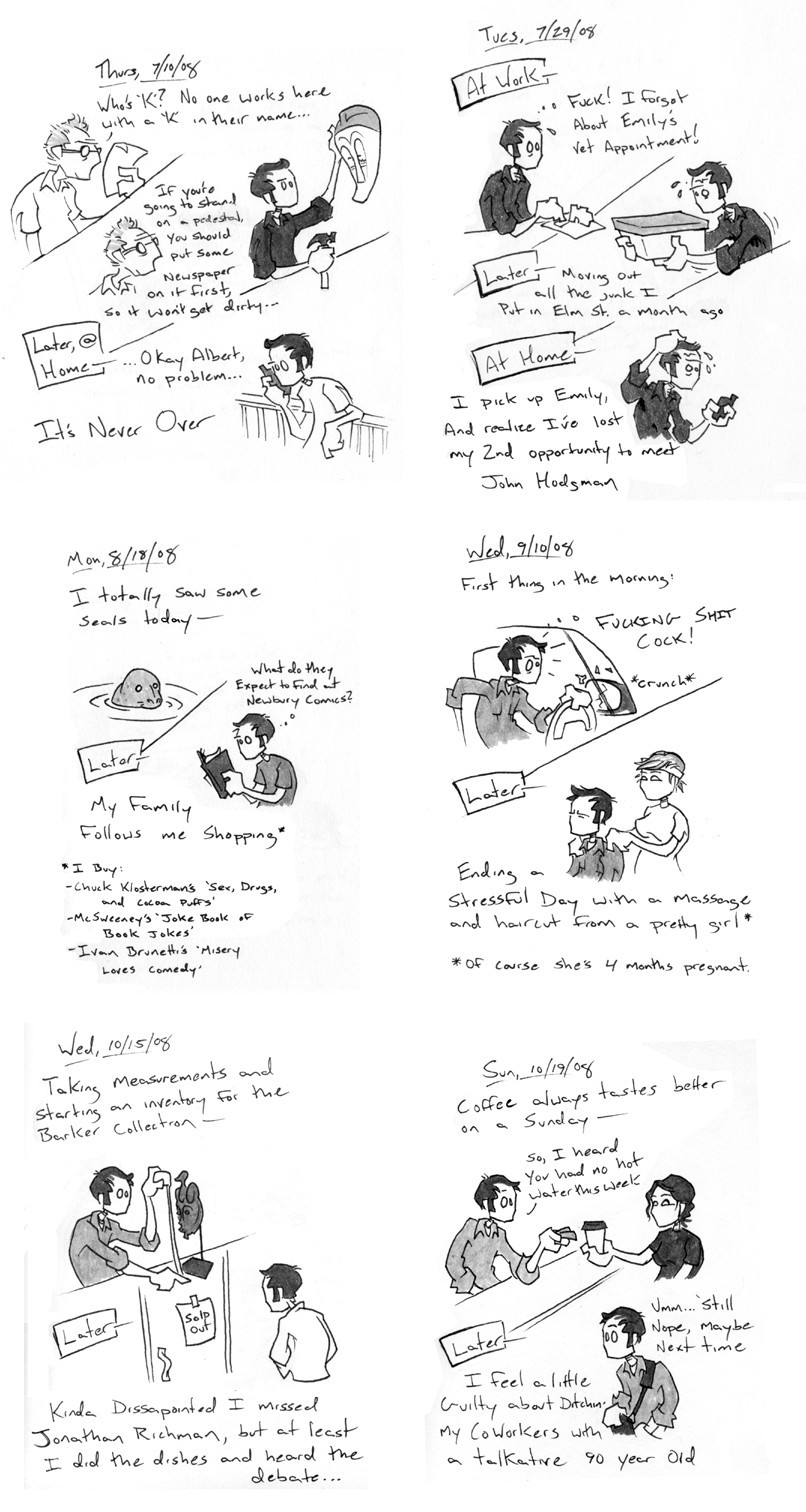 Thurs, 7/10/08
Who's 'K'? No one works here
with a 'K' in their name...
If you're
going to stand
on a pedestal,
you should
put some
Newspaper
on it first,
so it won't get dirty...
Later, @
Home
...Okay Albert,
no problem...
It's Never Over
Tues, 7/29/08
At Work
... Fuck! I forgot
About Emily's
Vet Appointment!
Later
Moving out
all the junk I
Put in Elm St. a month ago
At Home
I pick up Emily,
And realize I've lost
my 2nd opportunity to meet
John Hodgman
Mon, 8/18/08
I totally saw some
seals today—
What do they
Expect to find at
Newbury Comics?
Later
My Family
Follows me Shopping*
*I Buy:
-Chuck Klosterman's 'Sex, Drugs,
and Cocoa Puffs'
-McSweeney's 'Joke Book of
Book Jokes'
-Ivan Brunetti's 'Misery
Loves Comedy'
Wed, 9/10/08
First thing in the morning:
FUCKING SHIT
COCK!
*crunch*
Later
Ending a
Stressful Day with a massage
and haircut from a pretty girl*
*Of course she's 4 months pregnant.
Wed, 10/15/08
Taking Measurements and
starting an inventory for the
Barker Collection—
Sold
Out
Later
Kinda Dissapointed I missed
Jonathan Richman, but at least
I did the dishes and heard the
debate...
Sun, 10/19/08
Coffee always tastes better
on a Sunday—
So, I heard
you had no hot
water this week
Later
Umm... Still
Nope, Maybe
Next time
I feel a little
Guilty about Ditchin'
My CoWorkers with
a talkative 90 year old